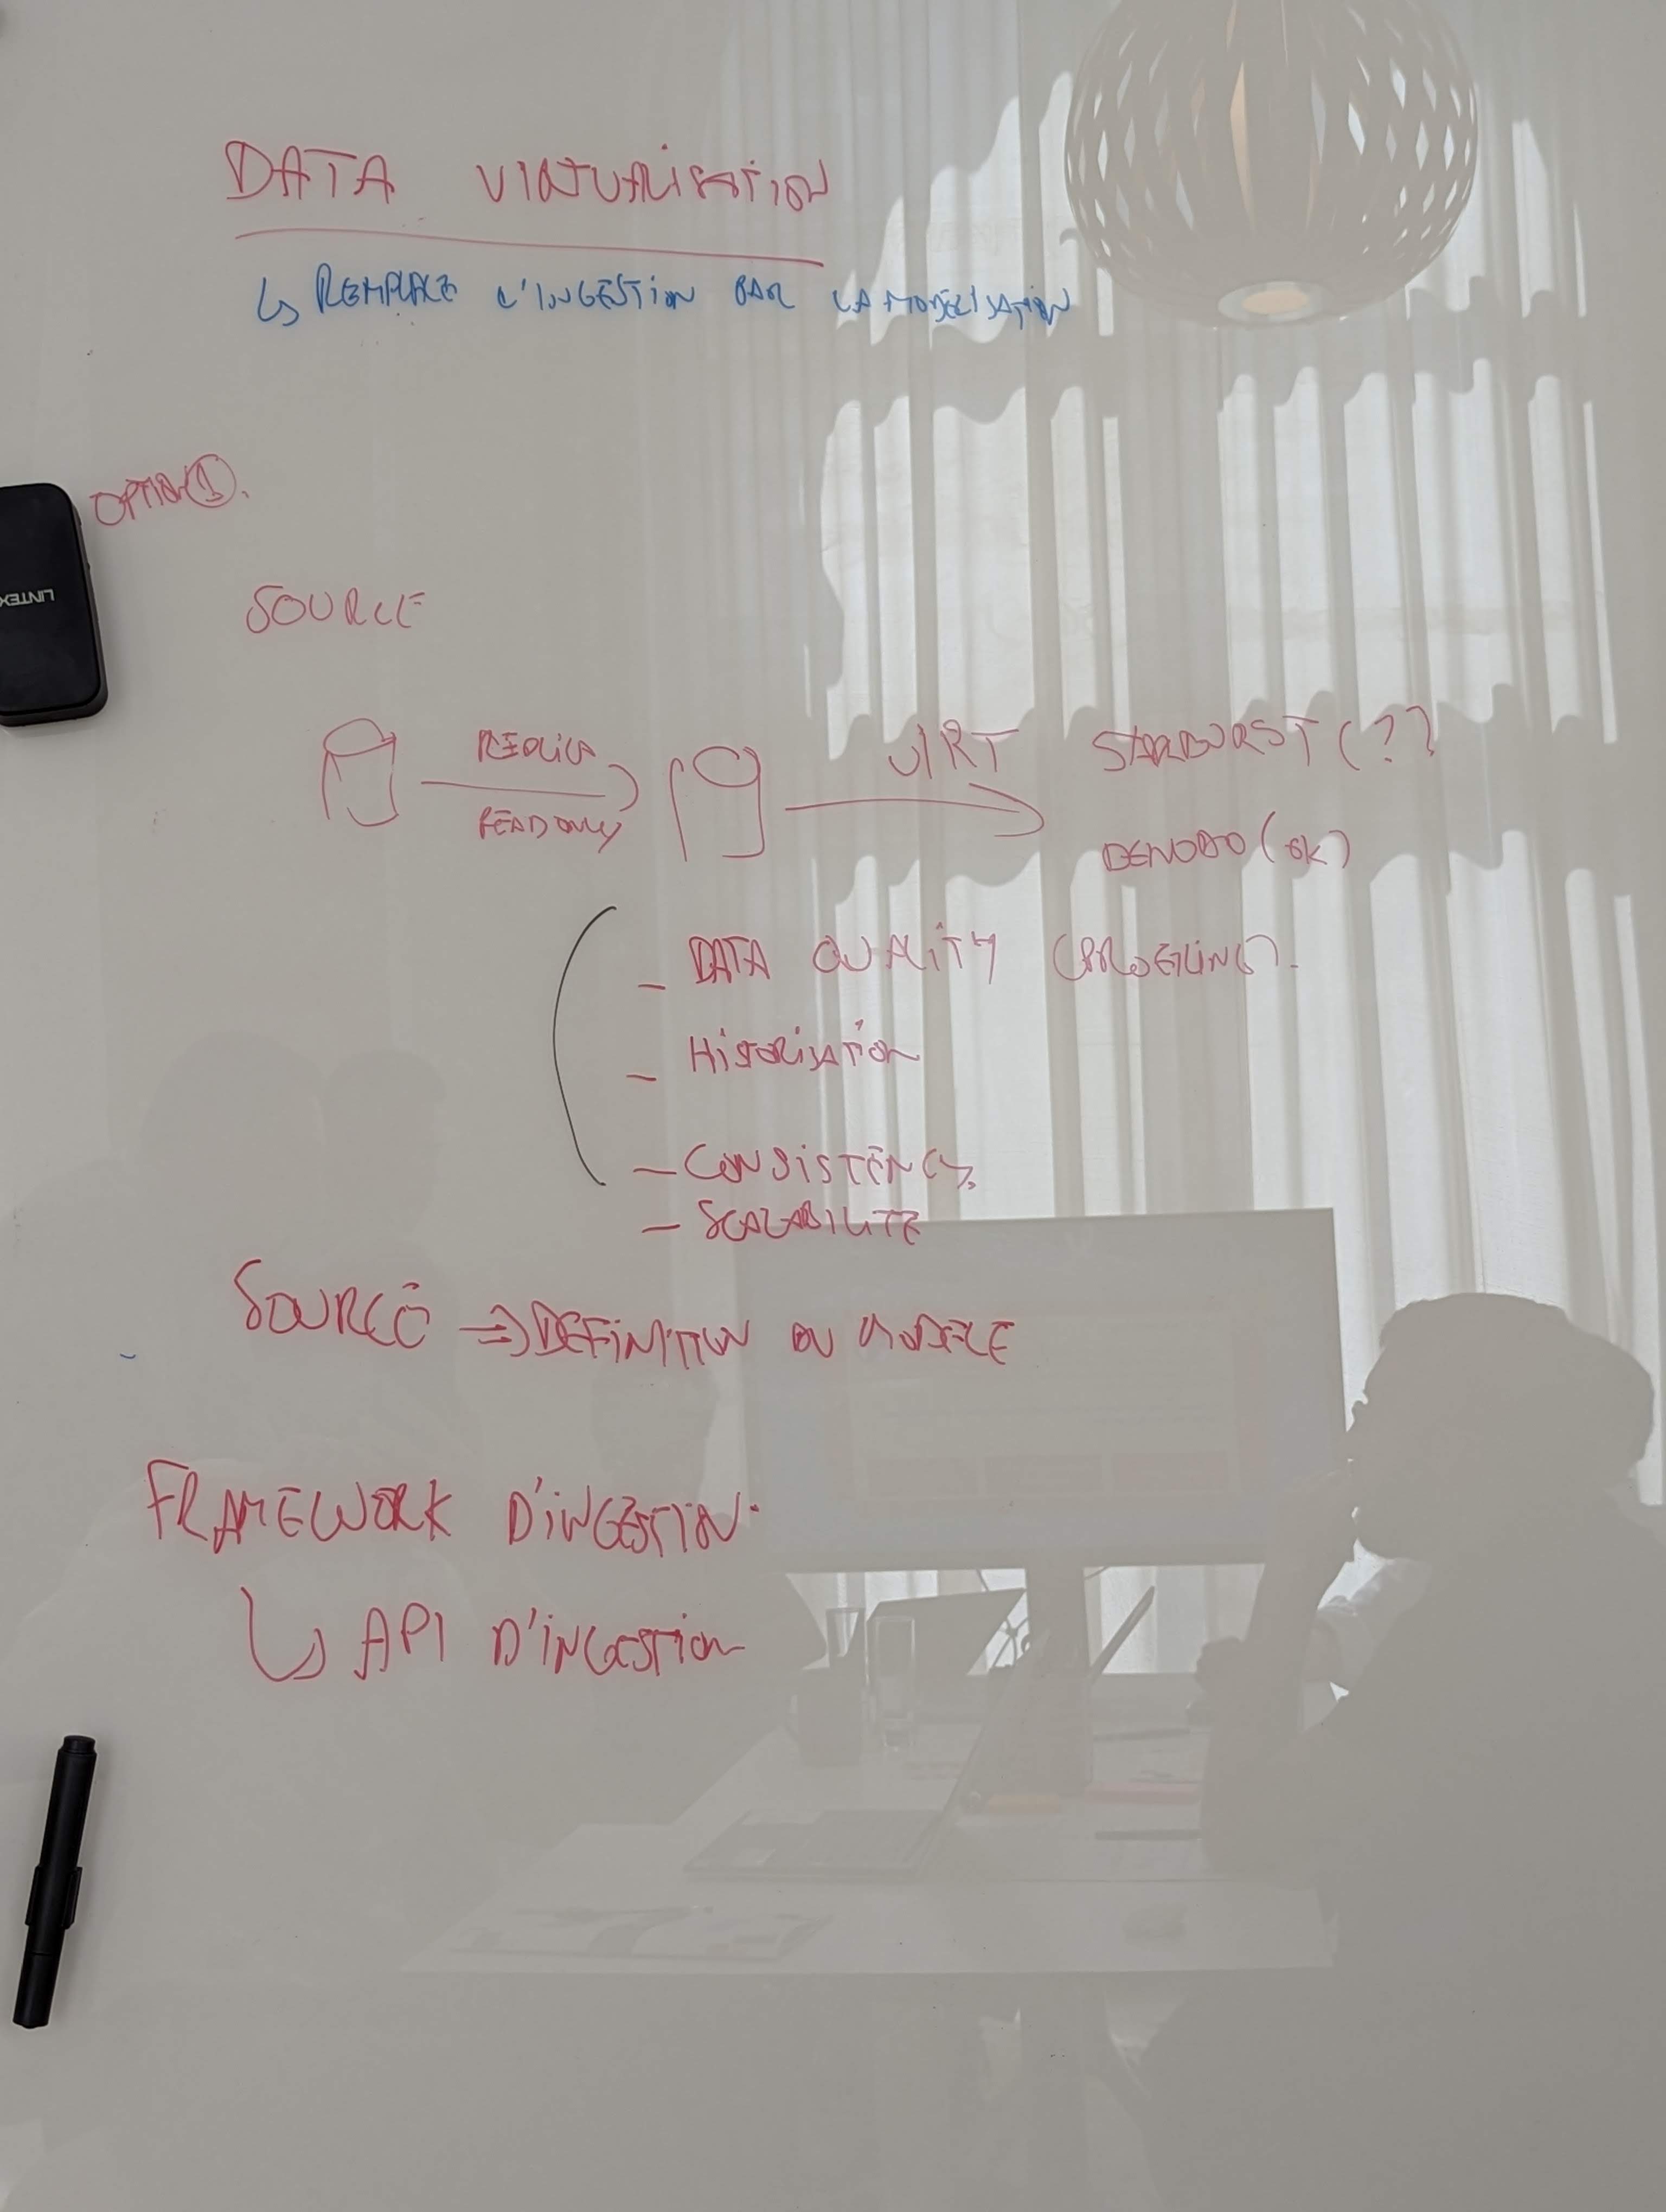 DATA VIRTUALISATION
↳ REMPLACE L'INGESTION PAR LA MODÉLISATION
OPTION 1.
LINTEX
SOURCE
REPLICA
READ ONLY
VIRT
STARBURST (??)
DENODO (OK)
- DATA QUALITY (PROFILING).
- HISTORISATION
- CONSISTENCY
- SCALABILITE
SOURCE ⇒ DEFINITION DU MODELE
FRAMEWORK D'INGESTION
↳ API D'INGESTION